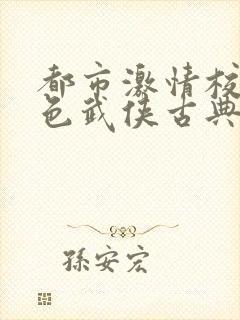 都市激情校
色武侠古典
孫安宏